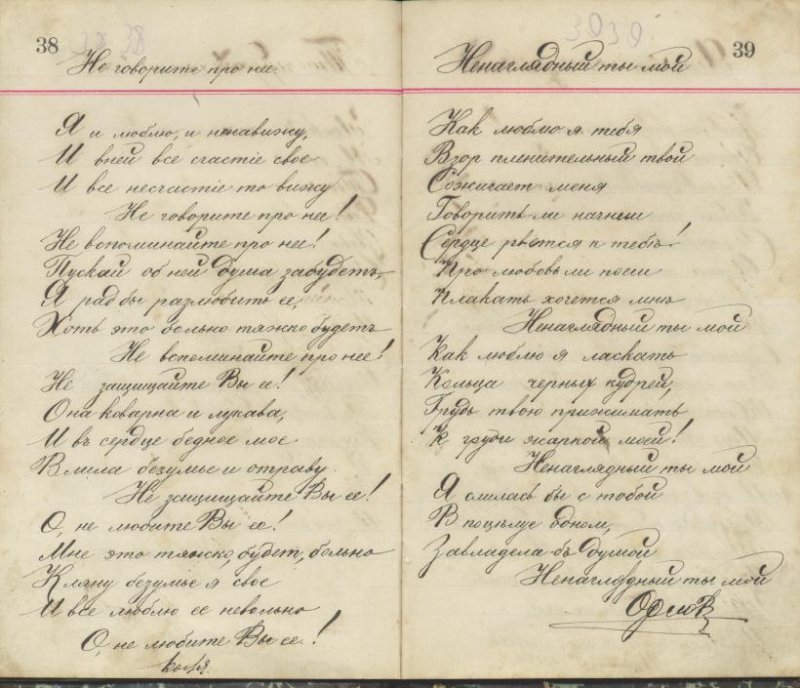 38
Не говорите про нее.
Я и люблю, и ненавижу,
И вней все счастіе свое
И все несчастіе то вижу
Не говорите про нее!
Не вспоминайте про нее!
Пускай об ней душа забудетъ,
Я рад бы разлюбить ее,
Хоть это больно тяжко будетъ
Не вспоминайте про нее!
Не защищайте Вы ее!
Она коварна и лукава,
И въ сердце бедное мое
Влила безумье и отраву
Не защищайте Вы ее!
О, не любите Вы ее!
Мне это тяжко, будет, больно
Кляну безумье я свое
И все люблю ее невольно
О, не любите Вы ее!
39
Ненаглядный ты мой
Как люблю я тебя
Взор пленительный твой
Сожигает меня
Говорить ли начнеш
Сердце рвется к тебѣ!
Про любовь ли поеш
Плакать хочется мнѣ
Ненаглядный ты мой
Как люблю я ласкать
Кольца черных кудрей,
Грудь твою прижимать
К груди жаркой моей!
Ненаглядный ты мой
Я слилась бы с тобой
В поцѣлуе одном,
Завладела бъ душой
Ненаглядный ты мой